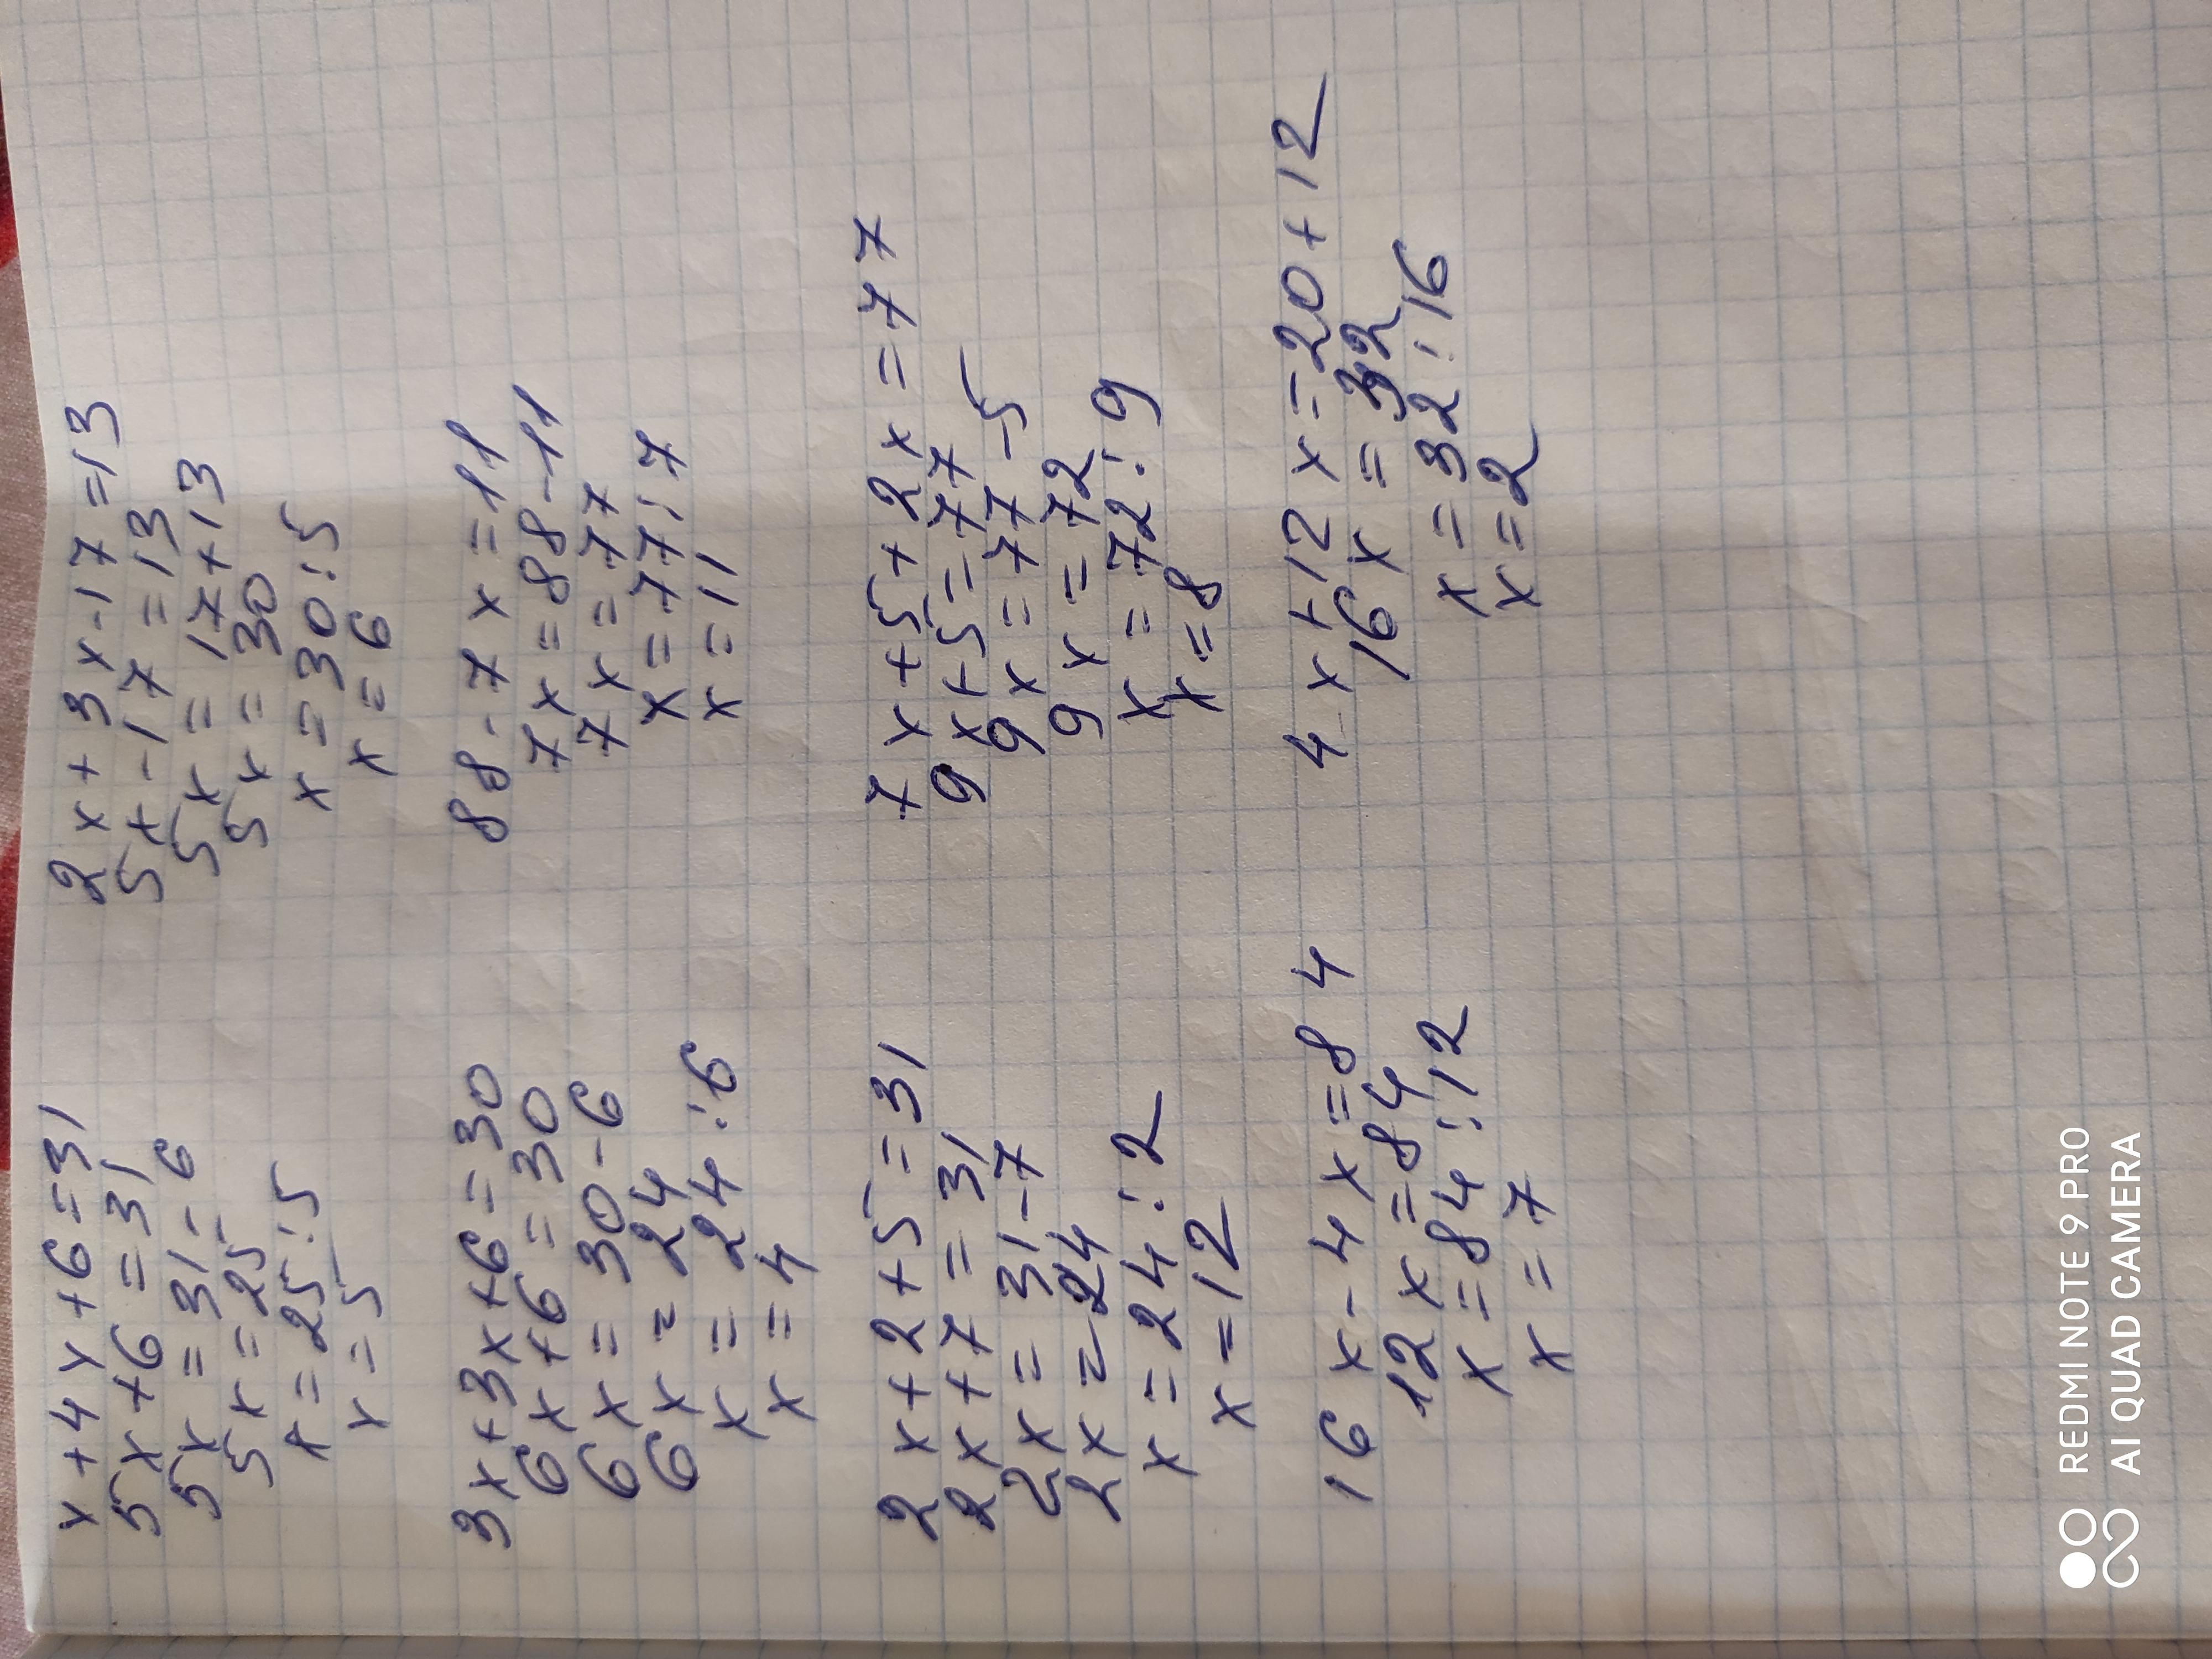 x+4x+6=31
5x+6=31
5x=31-6
5x=25
x=25:5
x=5
2x+3x-17=13
5x-17=13
5x=17+13
5x=30
x=30:5
x=6
3x+3x+6=30
6x+6=30
6x=30-6
6x=24
x=24:6
x=4
88-7x=11
7x=88-11
7x=77
x=77:7
x=11
2x+2+5=31
2x+7=31
2x=31-7
2x=24
x=24:2
x=12
7x+5+2x=77
9x+5=77
9x=77-5
9x=72
x=72:9
x=8
16x-4x=84
12x=84
x=84:12
x=7
4x+12x=20+12
16x=32
x=32:16
x=2
REDMI NOTE 9 PRO
AI QUAD CAMERA